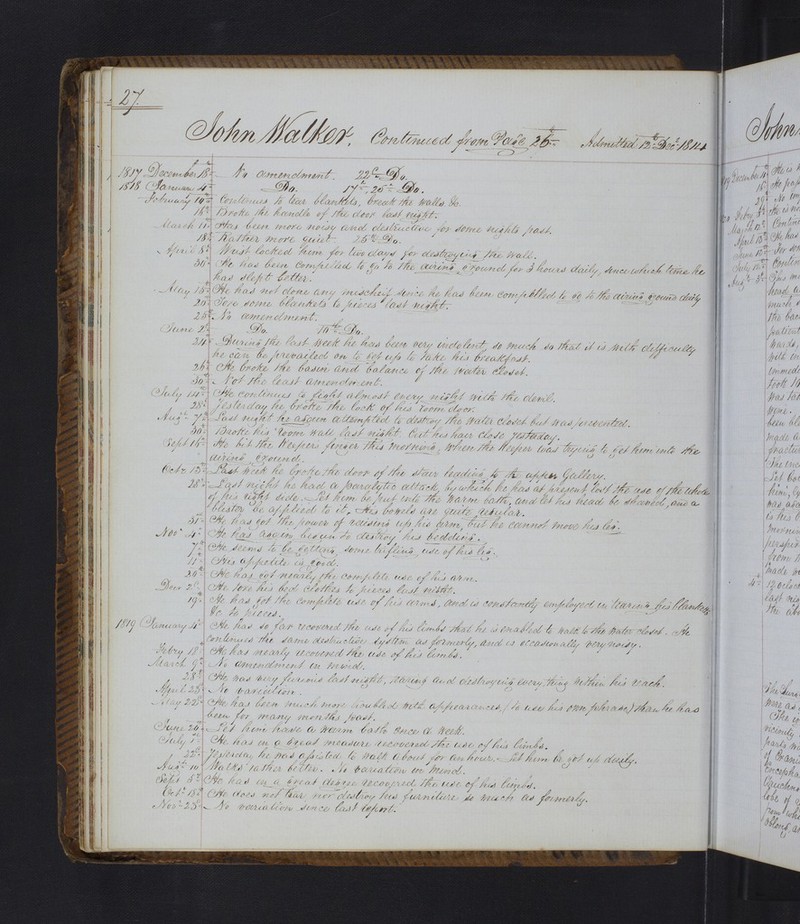 27
John Walker. Continued from Page 26 Admitted 12th Decr 1814
1817 December 18th No amendment. 22d Do.
1818 January 4th Do. 17th, 20th Do.
February 10th Continues to tear blankets, break the walls &c.
18th Broke the handle of the door last night.
March 1st Has been more noisy and destructive for some nights past.
18th Rather more quiet. 25th Do.
April 8th Wrist locked him for two days for destroying the wall.
30th He has been compelled to go to the airing ground for 3 hours daily, since which time he
has slept better.
May 13th He has not done any mischief since he has been compelled to go to the airing ground daily
20th Tore some blankets to pieces last night.
25th No amendment.
June 2d Do. 10th Do.
24th During the last week he has been very indolent, so much so that it is with difficulty
he can be prevailed on to get up to take his breakfast.
26th He broke the basin and balance of the water closet.
30th Not the least amendment.
July 14th He continues to fight almost every night with the devil.
28th Yesterday he broke the lock of his room door.
Augt 7th Last night he again attempted to destroy the water closet but was prevented.
30th Broke his room wall last night. Cut his hair close yesterday.
Sept 16th He bit the Keepers finger this morning, when the Keeper was trying to get him into the
airing ground.
Octr 12th Last week he broke the door of the stair leading to the upper Gallery.
28th Last night he had a paralytic attack, by which he has at present lost the use of the whole
of his right side. Let him be put into the warm bath, and let his head be shaved, and a
blister be applied to it. His bowels are quite regular.
31st He has got the power of raising up his arm, but he cannot move his leg.
Novr 4th He has again begun to destroy his bedding.
7th He seems to be getting some trifling use of his leg.
11th His appetite is good.
26th He has got nearly the complete use of his arm.
Decr 2d He tore his bed clothes to pieces last night.
19th He has got the complete use of his arms, and is constantly employed in tearing his blankets
&c. to pieces.
1819 January 4th He has so far recovered the use of his limbs that he is enabled to walk to the water closet. He
continues the same destructive system as formerly, and is occasionally very noisy.
Febry 18th He has nearly recovered the use of his limbs.
March 9th No amendment in mind.
28th He was very furious last night, tearing and destroying every thing within his reach.
April 28th No variation.
May 22d He has been much more troubled with appearances, (to use his own phrase) than he has
been for many months past.
June 20th Let him have a warm bath once a week.
July 7th He has in a great measure recovered the use of his limbs.
22d Yesterday he was assisted to walk about for an hour. Let him be got up daily.
Augt 10th Walks rather better. No variation in mind.
Sept 5th He has in a great degree recovered the use of his limbs.
Octr 18th He does not tear nor destroy his furniture so much as formerly.
Novr 25th No variation since last report.
John